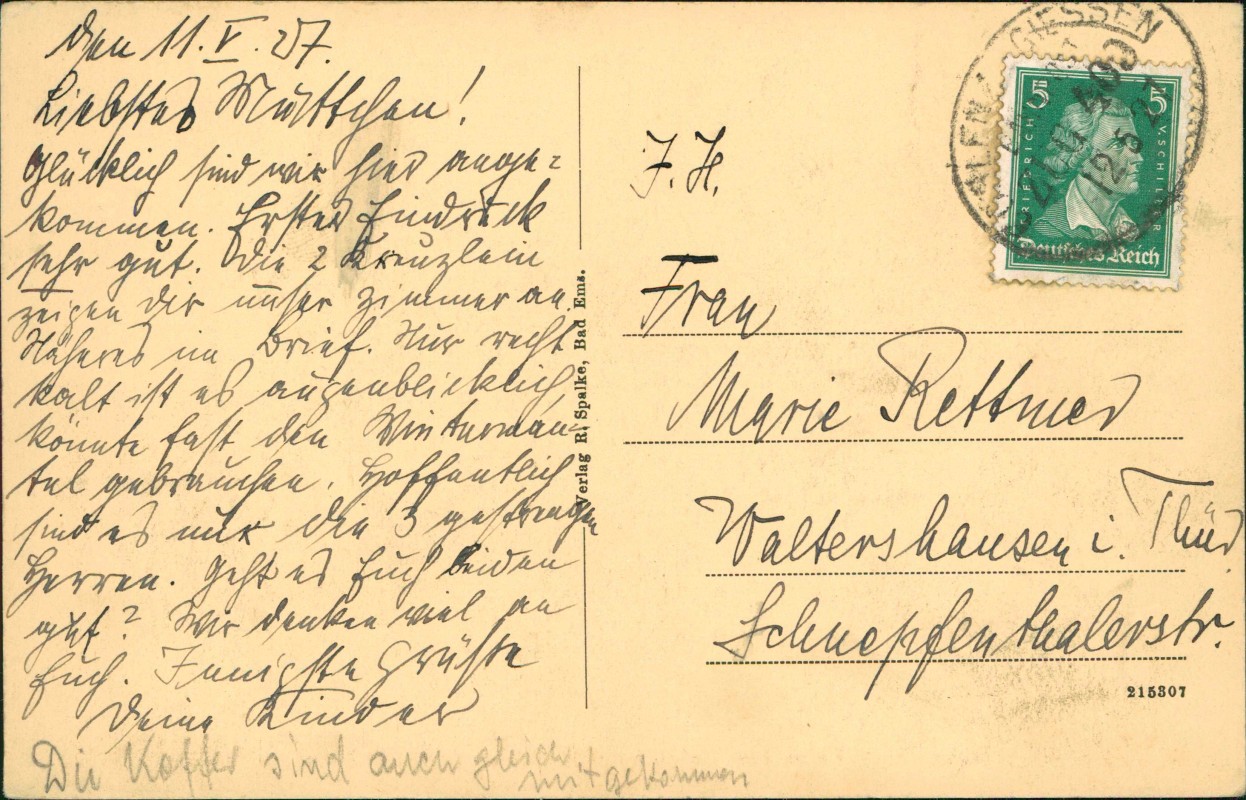 den 11. V. 27.
Liebstes Muttchen!
Glücklich sind wir hier ange=
kommen. Erster Eindruck
sehr gut. Die 2 Kreuzlein
zeigen dir unser Zimmer an.
Näheres im Brief. Nur recht
kalt ist es augenblicklich
könnte fast den Winterman=
tel gebrauchen. Hoffentlich
sind es nur die 3 gestrengen
Herren. Geht es Euch beiden
gut? Wir denken viel an
Euch. Innigste Grüße
Deine Kinder
Die Koffer sind auch gleich
mitgekommen
Verlag R. Spalke, Bad Ems.
GIESSEN
ZUG
12.5.27
5 5
FRIEDRICH V. SCHILLER
Deutsches Reich
J. H.
Frau
Marie Rettmer
Waltershausen i. Thür
Schnepfenthalerstr.
215307